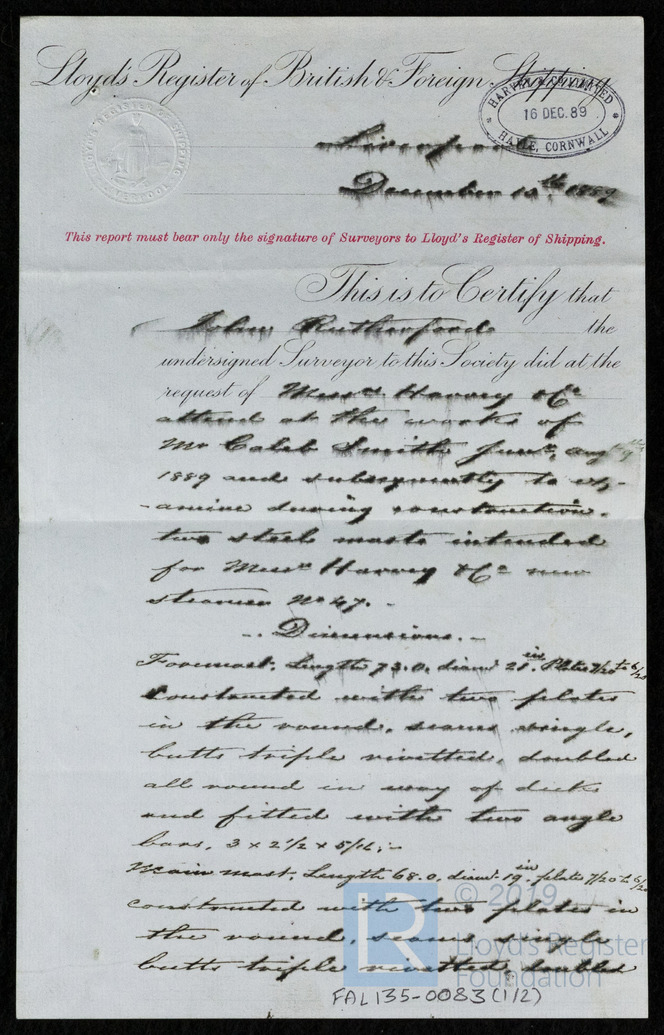 Lloyd's Register of British & Foreign Shipping
HARVEY & CO LIMITED
16 DEC. 89
HAYLE, CORNWALL
LLOYD'S REGISTER OF SHIPPING
LIVERPOOL
Liverpool
December 12th 1889
This report must bear only the signature of Surveyors to Lloyd's Register of Shipping.
This is to Certify that
John Rutherford the
undersigned Surveyor to this Society did at the
request of Messrs Harvey & Co
attend at the works of
Mr Caleb Smith Junr, aug 9th
1889 and subsequently to ex-
-amine during construction.
two steel masts intended
for Messrs Harvey & Co new
steamer No 47. -
-. Dimensions. -
Foremast. Length 73.0, diamr 21 in. Plates 7/20 to 6/20
Constructed with two plates
in the round, seams single,
butts triple rivetted, doubled
all round in way of deck
and fitted with two angle
bars, 3 x 2 1/2 x 5/16:-
Main mast, Length 68.0, diamr 19 in. plates 7/20 to 6/20
constructed with two plates in
the round, seams single
butts triple rivetted, doubled
LR
© 2019
Lloyd's Register
Foundation
FAL135-0083(1/2)